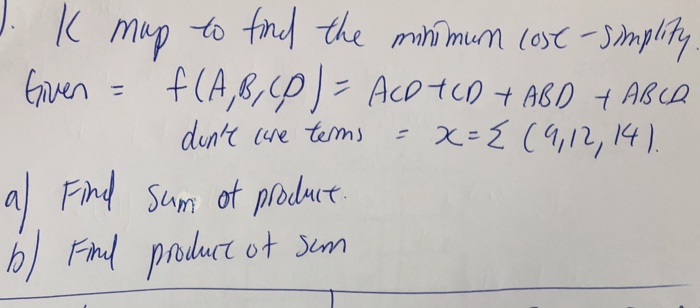 ). K map to find the minimum cost - simplify.
Given = f(A,B,C,D) = ACD + CD + ABD + ABCD
don't care terms = x = Σ (9,12,14).
a) Find sum of product.
b) Find product of sum